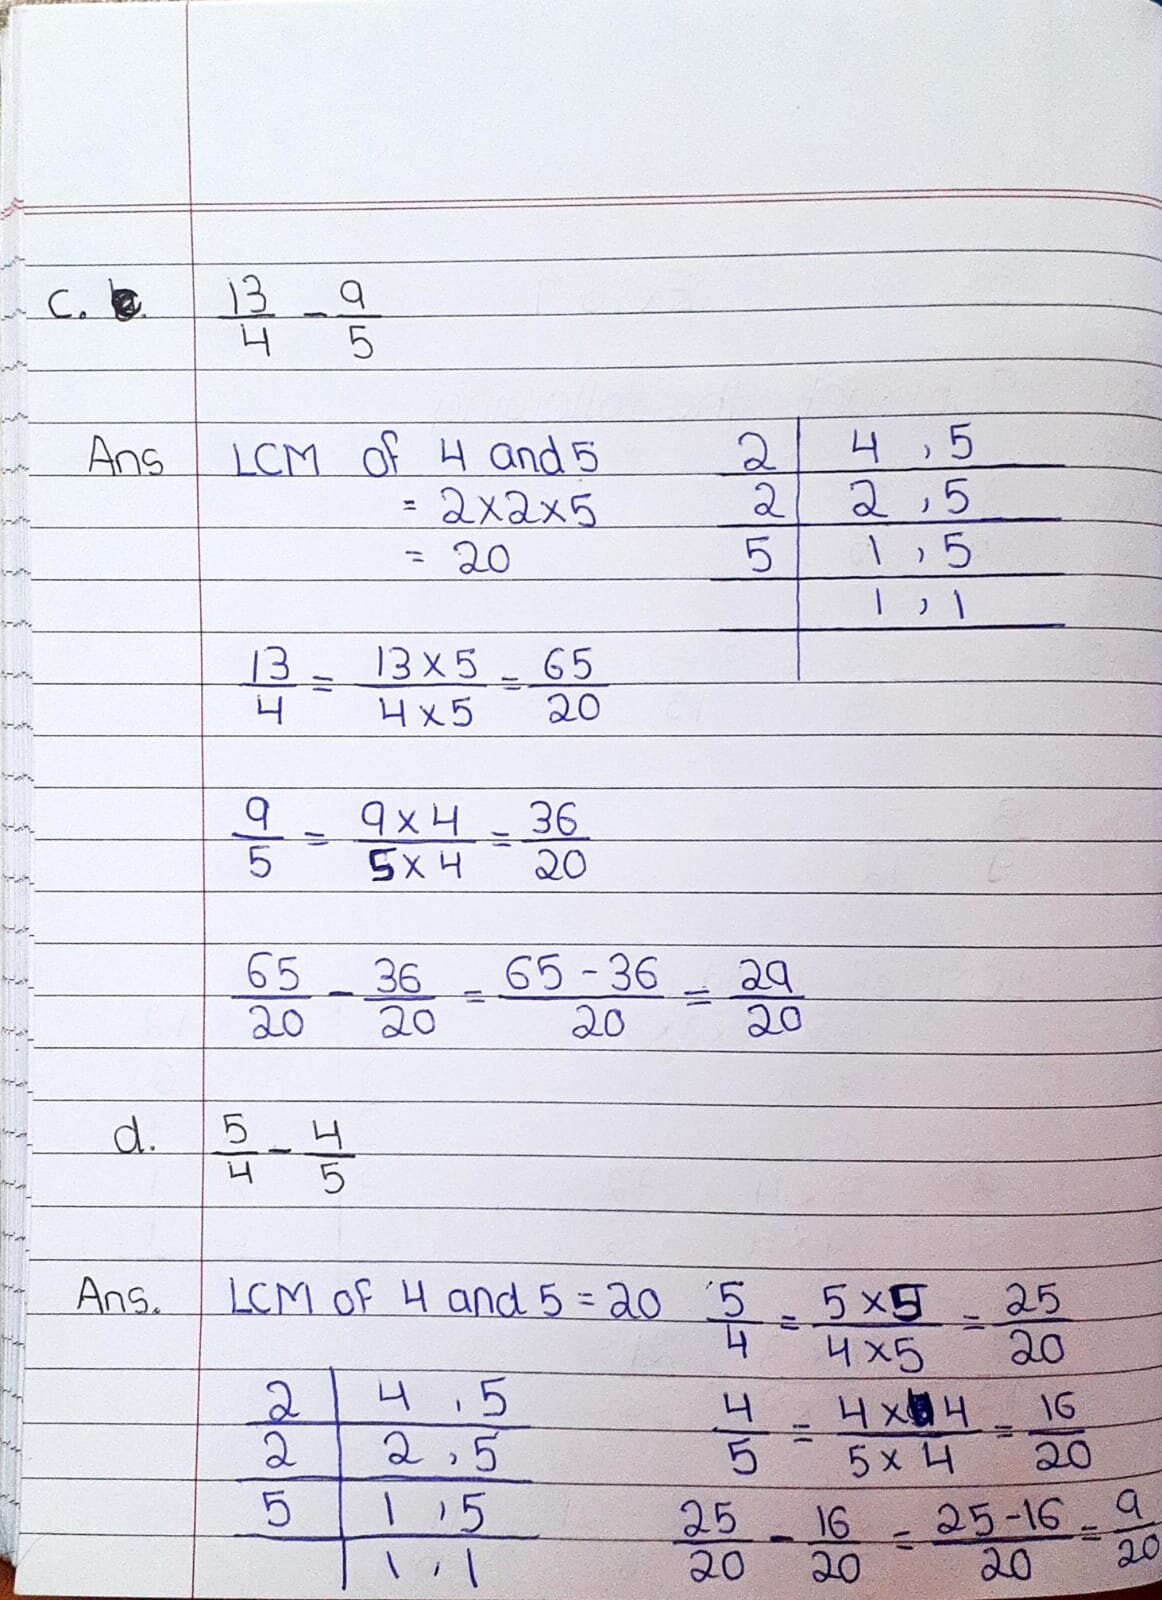 c. 13/4 - 9/5
Ans LCM of 4 and 5
= 2x2x5
= 20
2 | 4 , 5
2 | 2 , 5
5 | 1 , 5
1 , 1
13/4 = 13 x 5/4 x 5 = 65/20
9/5 = 9 x 4/5 x 4 = 36/20
65/20 - 36/20 = 65 - 36/20 = 29/20
d. 5/4 - 4/5
Ans. LCM of 4 and 5 = 20
2 | 4 , 5
2 | 2 , 5
5 | 1 , 5
1 , 1
5/4 = 5 x 5/4 x 5 = 25/20
4/5 = 4 x 4/5 x 4 = 16/20
25/20 - 16/20 = 25-16/20 = 9/20